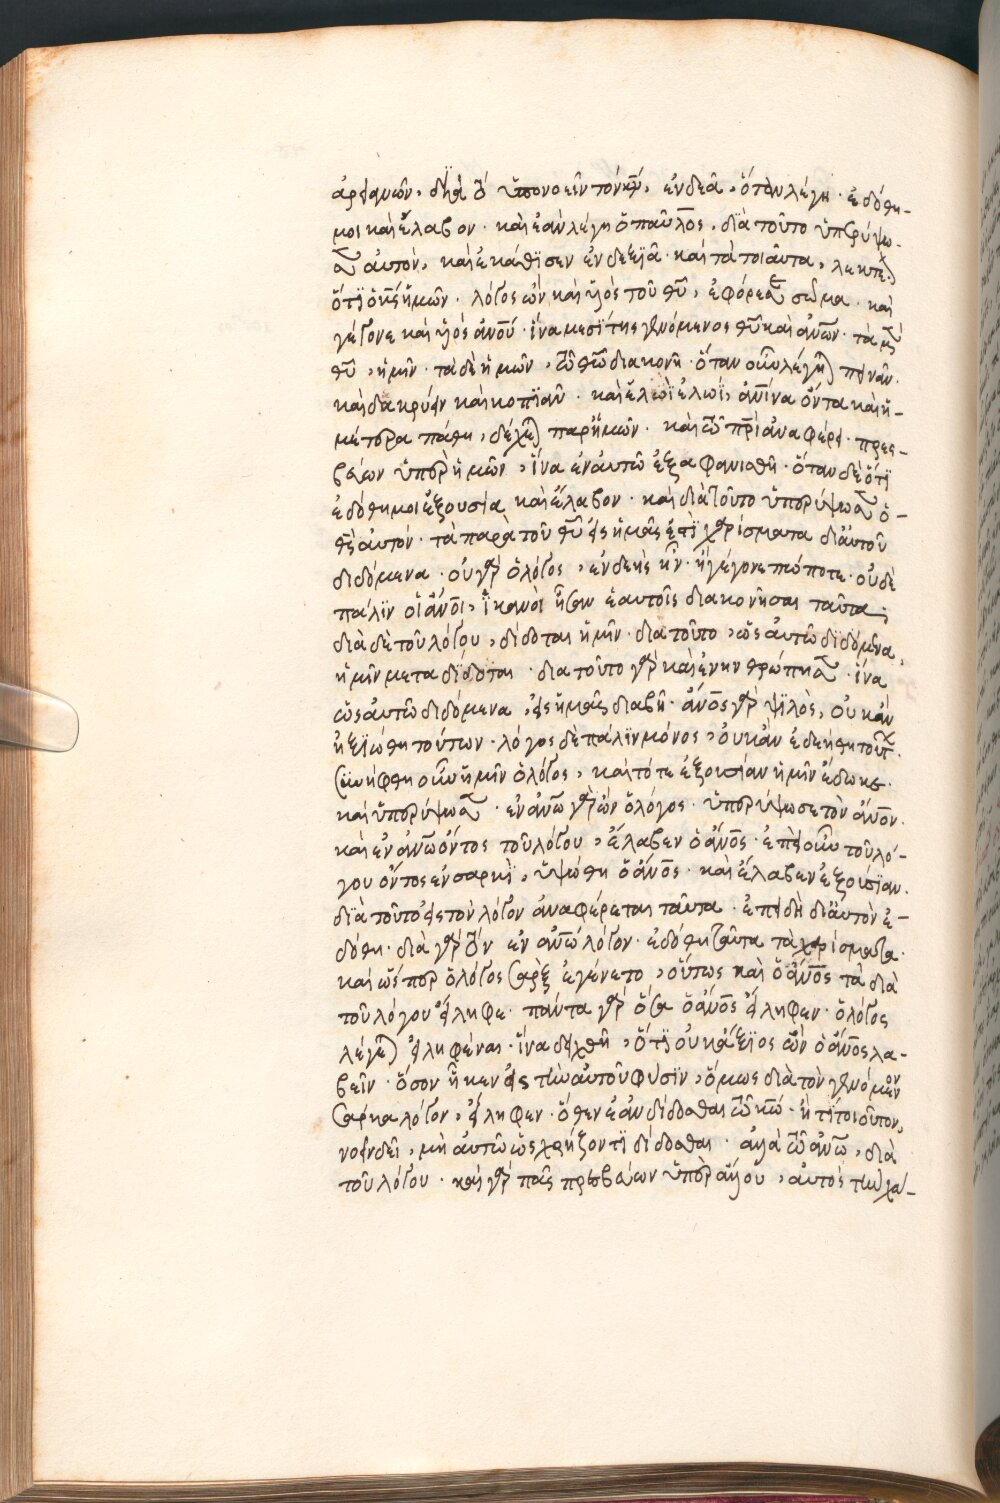 ἀρειανῶν, δῆλα δὲ ὑπονοεῖν τὸν κν̄, ἐνδεᾶ, ὅταν λέγη· ἐδόθη-
μοι καὶ ἔλαβον· καὶ ἐὰν λέγη ὁ παῦλος, διὰ τοῦτο ὑπερύψω-
σεν αὐτὸν, καὶ ἐκάθϊσεν ἐν δεξϊᾶ· καὶ τὰ τοιαῦτα, λεκτέον
ὅτϊ ὁ κς̄ ἡμῶν· λόγος ὢν καὶ υἱὸς τοῦ θῦ, ἐφόρεσε σῶμα· καὶ
γέγονε καὶ υἱὸς ἀνού· ἵνα μεσΐτης γενόμενος θῦ καὶ ἀνων· τὰ μὲν
θῦ, ἡμῖν· τὰ δὲ ἡμῶν, τῶ θῶ διακονῆ· ὅταν οὖν λέγηται πεινᾶν·
καὶ δακρύειν καὶ κοπϊᾶν· καὶ ἐλωῒ ἐλωῒ, ἅτινα ὄντα καὶ ἡ-
μέτερα πάθη, δέχεται παρ' ἡμῶν· καὶ τῶ πρὶ ἀναφέρει· πρεσ-
βεύων ὑπὲρ ἡμῶν, ἵνα ἐν αὐτῶ ἐξαφανισθῆ· ὅταν δὲ ὅτϊ
ἐδόθη μοι ἐξουσία καὶ ἔλαβον· καὶ διὰ τοῦτο ὑπερύψωσεν ὁ-
θς̄ αὐτόν· τὰ παρὰ τοῦ θῦ εἰς ἡμᾶς ἐστϊ χαρίσματα δι' αὐτοῦ
διδόμενα· οὐ γὰρ ὁ λόγος, ἐνδεὴς ἦν· ἢ γέγονε πώποτε· οὐδὲ
πάλϊν οἱ ἄνοι, ἱκανοὶ ἦσαν ἑαυτοῖς διακονῆσαι ταῦτα·
διὰ δὲ τοῦ λόγου, δίδοται ἡμῖν· δια τοῦτο, ὡς αὐτῶ δϊδόμενα,
ἡμῖν μεταδίδοται· δια τοῦτο γὰρ καὶ ἐνηνθρώπησεν· ἵνα
ὡς αὐτῶ διδόμενα, εἰς ἡμᾶς διαβῆ· ἄνος γὰρ ψϊλὸς, οὐκ ἂν
ἠξϊώθη τούτων· λόγος δὲ πάλϊν μόνος, οὐκ ἂν ἐδεήθη τούτων·
συνήφθη οὖν ἡμῖν ὁ λόγος, καὶ τότε ἐξουσίαν ἡμῖν ἔδωκε·
καὶ ὑπερύψωσεν· ἐν ἀνω γὰρ ὢν ὁ λόγος· ὑπερύψωσε τὸν ἄνον·
καὶ ἐν ἀνω ὄντος τοῦ λόγου, ἔλαβεν ὁ ἄνος· ἐπεὶ οὖν τοῦ λό-
γου ὄντος ἐν σαρκὶ, ὑψώθη ὁ ἄνος· καὶ ἔλαβεν ἐξουσίαν·
διὰ τοῦτο εἰς τὸν λόγον ἀναφέρεται ταῦτα· ἐπειδὴ δι' αὐτὸν ἐ-
δόθη· διὰ γὰρ τὸν ἐν ἀνω λόγον· ἐδόθη ταῦτα τὰ χαρίσματα·
καὶ ὥσπερ ὁ λόγος σὰρξ ἐγένετο, οὕτως καὶ ὁ ἄνος τὰ διὰ
τοῦ λόγου εἴληφε· πάντα γὰρ ὅσα ὁ ἄνος εἴληφεν· ὁ λόγος
λέγεται εἰληφέναι· ἵνα δειχθῆ, ὅτϊ οὐκ ἄξϊος ὢν ὁ ἄνος λα-
βεῖν· ὅσον ἧκεν εἰς τὴν αὐτοῦ φύσϊν, ὅμως διὰ τὸν γενόμενον
σάρκα λόγον, εἴληφεν· ὅθεν ἐὰν δίδοσθαι τῶ κω· ἤ τϊ τοιοῦτον,
νοεῖν δεῖ, μὴ αὐτῶ ὡς χρήζοντϊ δίδοσθαι· ἀλλὰ τῶ ἀνω, διὰ
τοῦ λόγου· καὶ γὰρ πᾶς πρεσβεύων ὑπὲρ ἄλλου, αὐτὸς τὴν χά-